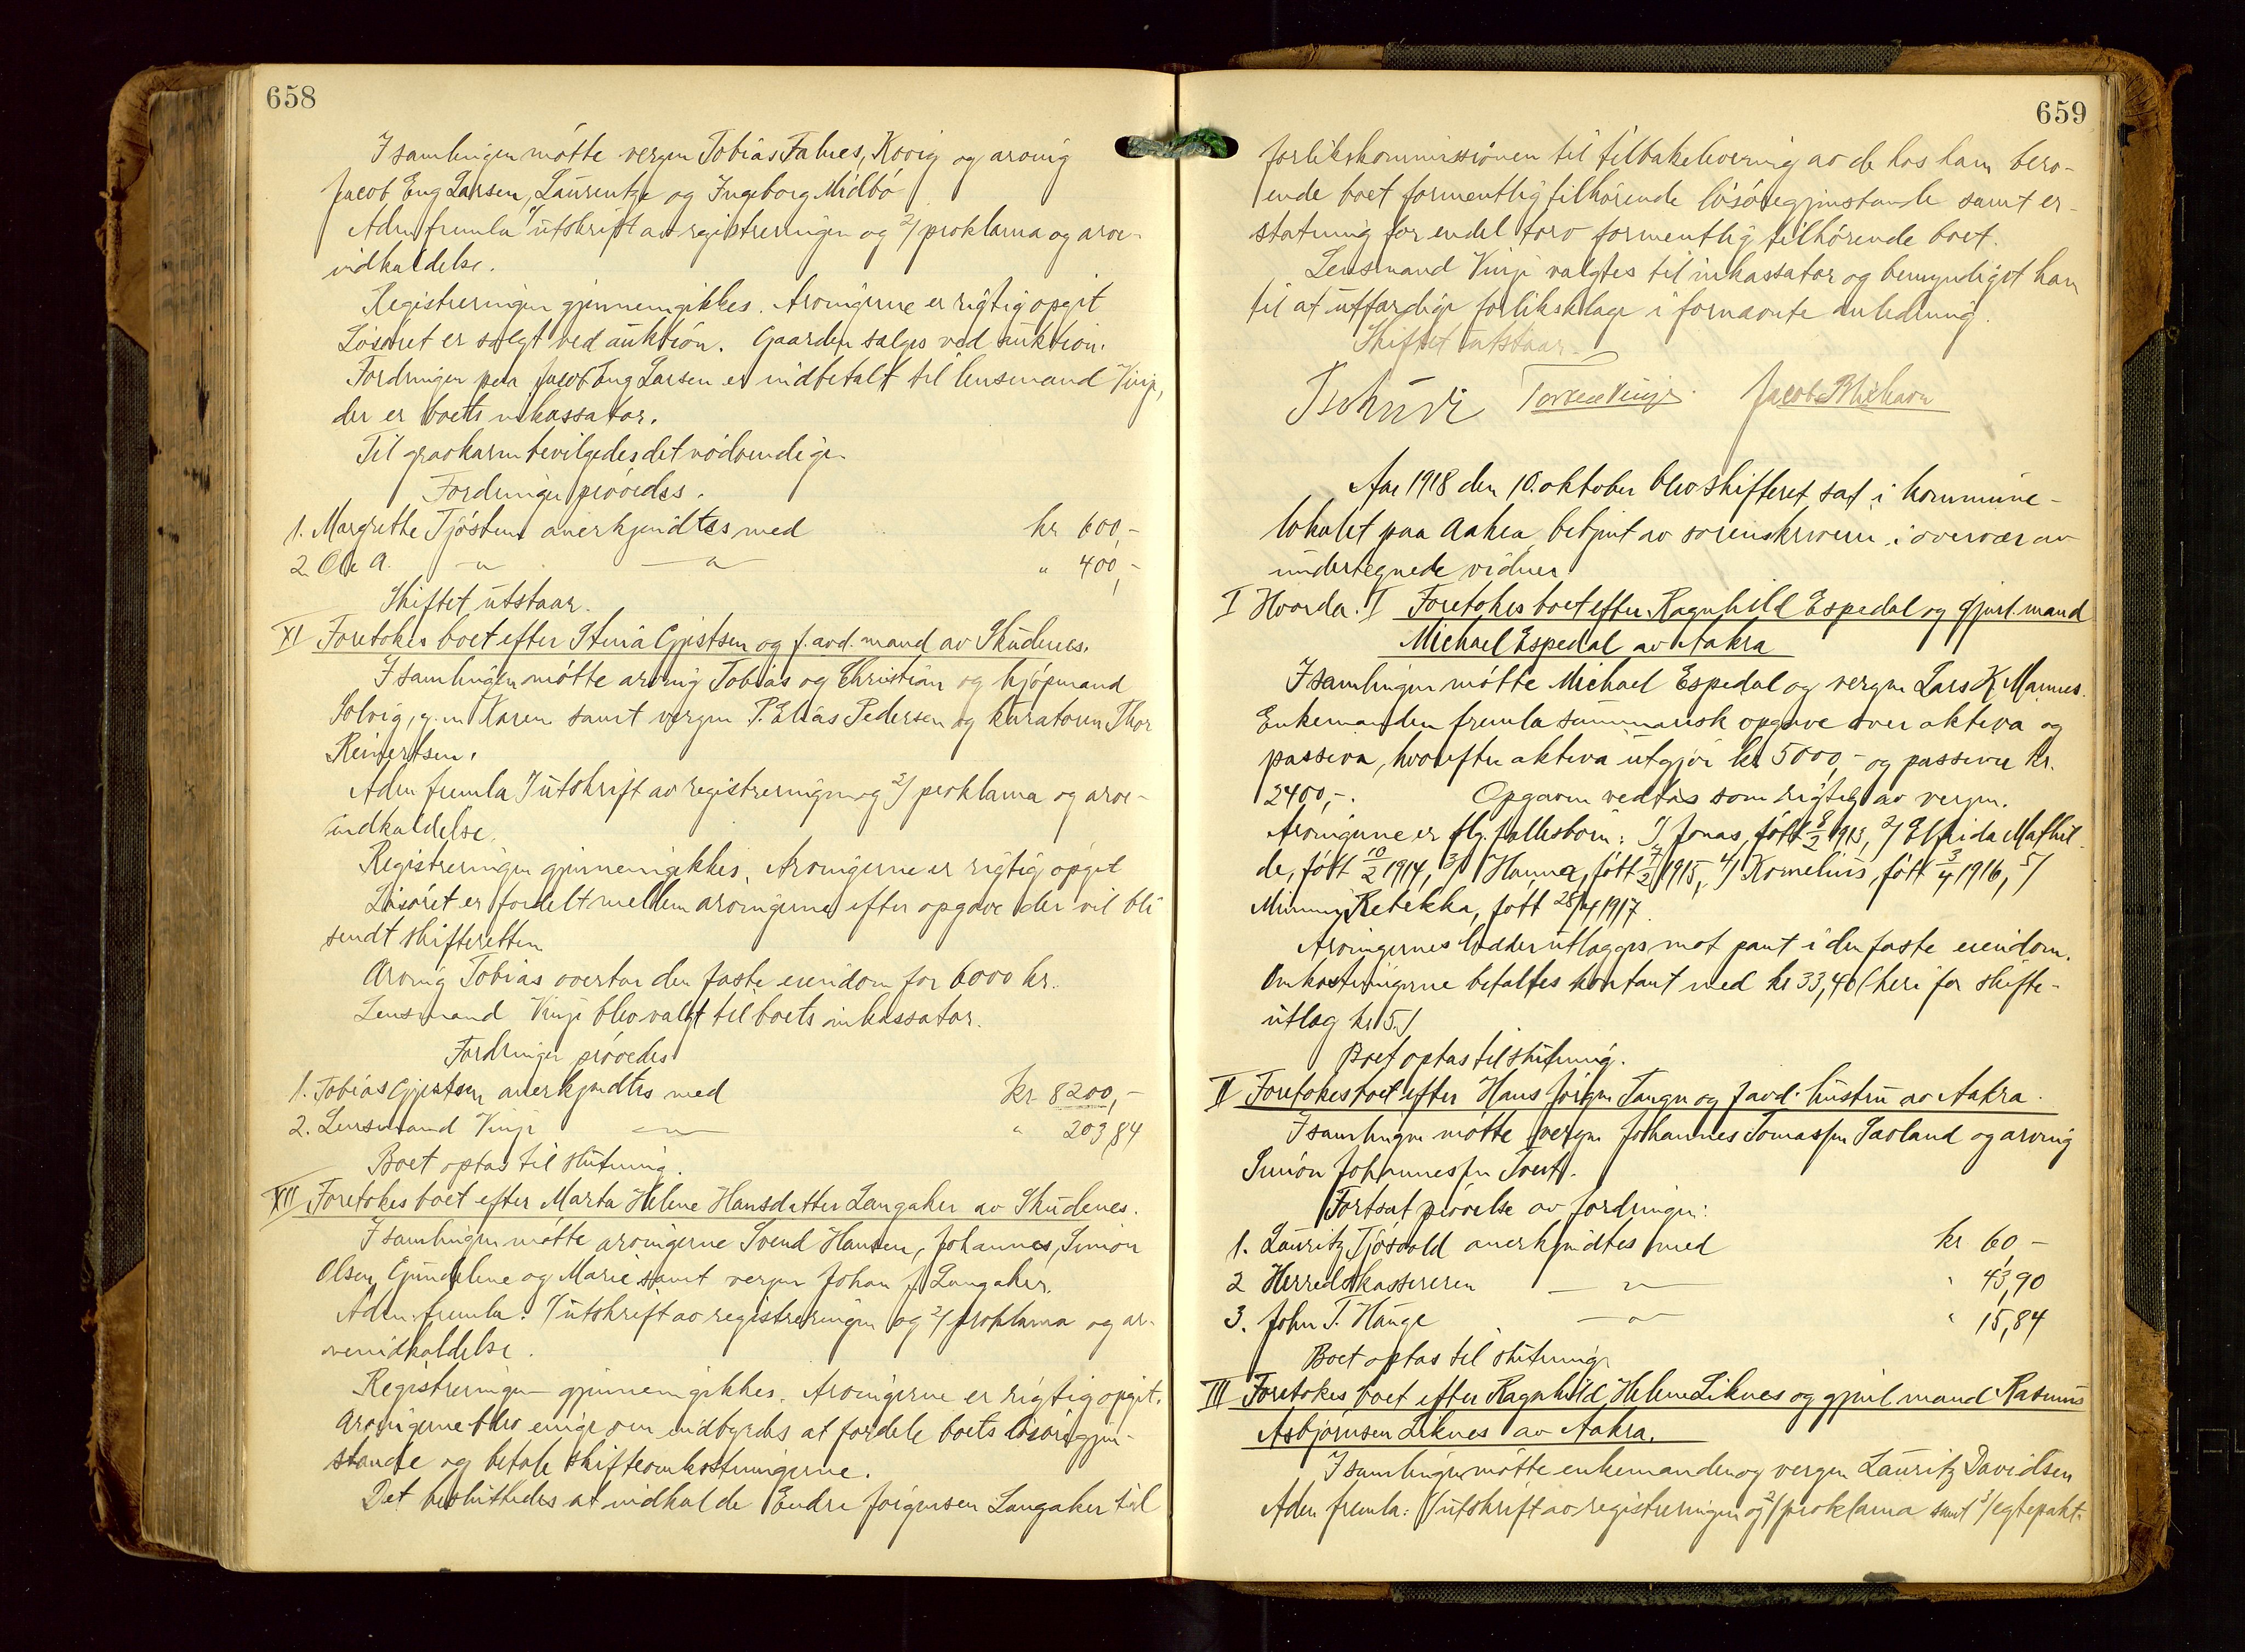 658
I samlingen møtte vergen Tobias Falnes, Kvorig og arving
Jacob Eng Larsen, Laurentze og Ingeborg Midbø
Adm fremla 1/ utskrift av registreringen og 2/ proklama og arve-
indkaldelse.
Registreringen gjennemgikkes. Arvingerne er rigtig opgit
Løsøret er solgt ved auktion. Gaarden salges ved auktion.
Fordringen paa Jacob Eng Larsen er indbetalt til lensmand Vinje,
der er boets inkassator.
Til gravkarm bevilgedes det nødvendige.
Fordringer prøvedes.
1. Margrethe Tjøstem anerkjendtes med kr 600,-
2. Ole A. —"— —"— " 400,-
Skiftet utstaar.
XI Foretokes boet efter Stina Gjertsen og f. avd. mand av Skudenes.
I samlingen møtte arving Tobias og Christian og kjøpmand
Solvig, g. m. Karen samt vergen P. Elias Pedersen og kuratoren Thor
Reinertsen.
Adm fremla 1/ utskrift av registreringen og 2/ proklama og arve-
indkaldelse.
Registreringen gjennemgikkes. Arvingerne er rigtig opgit
Løsøret er fordelt mellem arvingerne efter opgave der vil bli
sendt skifteretten
Arving Tobias overtar den faste eiendom for 6000 kr.
Lensmand Vinje blev valgt til boets inkassator.
Fordringer prøvedes
1. Tobias Gjertsen anerkjendtes med kr 8200,-
2. Lensmand Vinje —"— " 203,84
Boet optas til slutning.
XII Foretokes boet efter Marta Helene Hansdatter Langaker av Skudenes.
I samlingen møtte arvingerne Svend Hansen, Johannes, Simon
Olsen, Gundeline og Marie samt vergen Johan J. Langaker.
Adm. fremla: 1/ utskrift av registreringen og 2/ proklama og ar-
veindkaldelse.
Registreringen gjennemgikkes. Arvingerne er rigtig opgit.
Arvingerne blev enige om indbyrdes at fordele boets løsøregjen-
stande og betale skifteomkostningerne.
Det besluttedes at indkalde Endre Jørgensen Langaker til
659
forlikskommissionen til tilbakelevering av de hos ham bero-
ende boet formentlig tilhørende løsøregjenstande samt er-
statning for endel torv formentlig tilhørende boet.
Lensmand Vinje valgtes til inkassator og bemyndiget han
til at utfærdige forliksklage i fornævnte anledning.
Skiftet utstaar.
Tschudi Torkel Vinje. Jacob
Aar 1918 den 10. oktober blev skifteret sat i kommune-
lokalet paa Aakra, betjent av sorenskriveren i overvær av
undertegnede vidner
I Hvorda. I Foretokes boet efter Ragnhild Espedal og gjenl. mand
Michael Espedal av Aakra
I samlingen møtte Michael Espedal og vergen Lars K. Mannes.
Enkemanden fremla summarisk opgave over aktiva og
passiva, hvorefter aktiva utgjør kr 5000,- og passiva kr.
2400,-. Opgaven vedtas som rigtig av vergen.
Arvingerne er flg. fællesbørn: 1/ Jonas, født 8/2 1913, 2/ Elfrida Mathil-
de, født 10/2 1914, 3/ Hanna, født 7/2 1915, 4/ Kornelius, født 3/4 1916, 5/
Minni Rebekka, født 28/4 1917.
Arvingernes lodder utlægges mot pant i den faste eiendom.
Omkostningerne betaltes kontant med kr 33,40 (heri for skifte-
utlæg kr 5.)
Boet optas til slutning.
II Foretokes boet efter Hans Jørgen Tangen og f avd. hustru av Aakra.
I samlingen møtte vergen Johannes Tomassen Sævland og arving
Simon Johannessen Tveit.
Fortsat prøvelse av fordringer:
1. Lauritz Tjøsvold anerkjendtes med kr 60,-
2 Herredskassereren —"— " 43,90
3. John T. Hauge —"— " 15,84
Boet optas til slutning
III Foretokes boet efter Ragnhild Helene Liknes og gjenl. mand Rasmus
Asbjørnsen Liknes av Aakra.
I samlingen møtte enkemanden og vergen Lauritz Davidsen
Adm. fremla: 1/ utskrift av registreringen og 2/ proklama samt 3/ egtepakt.